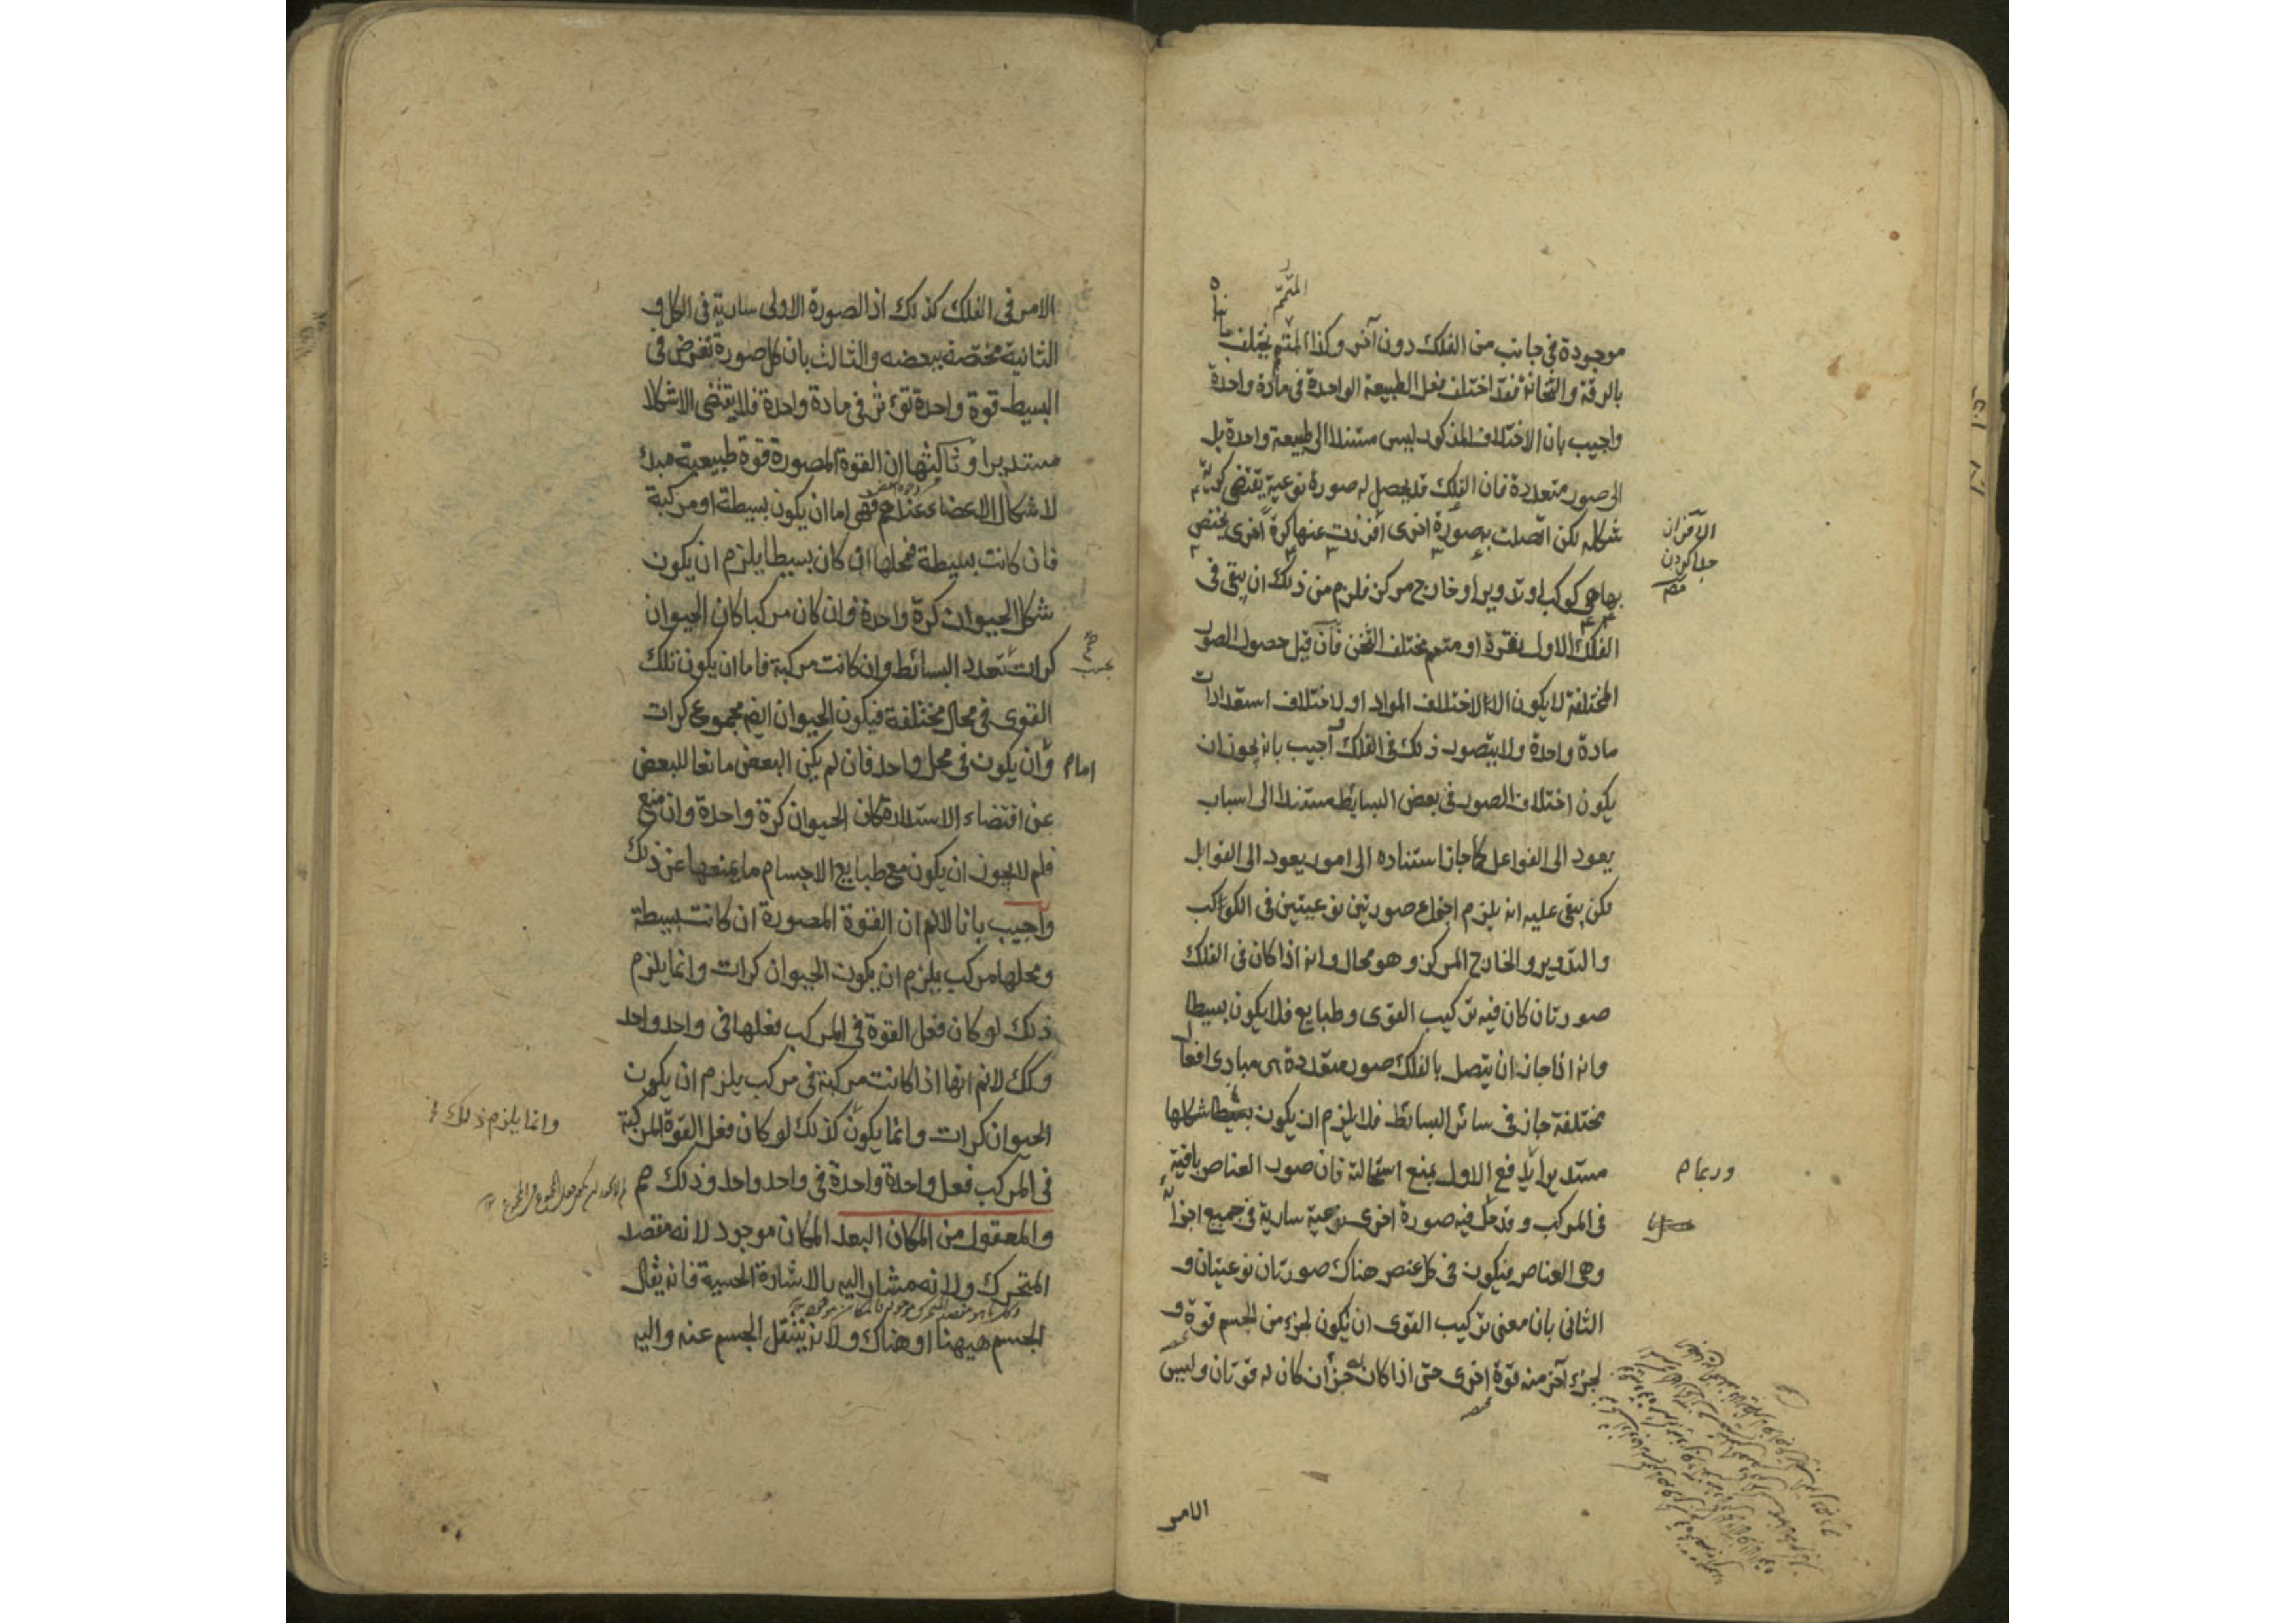 المتمم
موجودة فى جانب من الفلك دون آخر وكذا المتمم يختلف
بالرقة والثخانة فقد اختلف فعل الطبيعة الواحدة فى مادة واحدة
واجيب بان الاختلاف المذكور ليس مستندا الى طبيعة واحدة بل
الى صور متعددة فان الفلك قد يحصل له صورة نوعية يقتضى كرية
شكله لكن اتصلت به صورة اخرى افرزت عنها كرة اخرى يختص
بها هى كوكب او تدوير او خارج مركز فلزم من ذلك ان يبقى فى
الفلك الاول نقرة او متمم مختلف الثخن فان قيل حصول الصور
المختلفة لا يكون الا لاختلاف المواد او لاختلاف استعدادات
مادة واحدة ولا يتصور ذلك فى الفلك اجيب بانه يجوز ان
يكون اختلاف الصور فى بعض البسايط مستندا الى اسباب
يعود الى الفواعل كما جاز استناده الى امور يعود الى القوابل
لكن يبقى عليه انه يلزم اجتماع صورتين نوعيتين فى الكواكب
والتدوير والخارج المركز وهو محال وانه اذا كان فى الفلك
صورتان كان فيه تركيب القوى وطبايع فلا يكون بسيطا
وانه اذا جاز ان يتصل بالفلك صور متعددة هى مبادى افعال
مختلفة جاز فى سائر البسائط فلا يلزم ان يكون بسيطا شكلها
مستديرا يدفع الاول بمنع استحالته فان صور العناصر باقية
فى المركب وقد حل فيه صورة اخرى نوعية سارية فى جميع اجزائه
وهى العناصر فيكون فى كل عنصر هناك صورتان نوعيتان و
الثانى بان معنى تركيب القوى ان يكون لجزء من الجسم قوة و
لجزء آخر منه قوة اخرى حتى اذا كان له جزأن كان له قوتان وليس
الافراز
جدا كردن
الامر
الامر فى الفلك كذلك اذ الصورة الاولى سارية فى الكل و
الثانية مختصة ببعضه والثالث بان كل صورة تعرض فى
البسيط قوة واحدة تؤثر فى مادة واحدة فلا يقتضى الا شكلا
مستديرا وثالثها ان القوة المصورة قوة طبيعية مبدأ
لاشكال الاعضاء عندهم وهى اما ان يكون بسيطة او مركبة
فان كانت بسيطة فمحلها ان كان بسيطا يلزم ان يكون
شكل الحيوان كرة واحدة وان كان مركبا كان الحيوان
كرات بتعدد البسائط وان كانت مركبة فاما ان يكون تلك
القوى فى محال مختلفة فيكون الحيوان ايضم مجموع كرات
وان يكون فى محل واحد فان لم يكن البعض مانعا للبعض
امام
عن اقتضاء الاستدارة كان الحيوان كرة واحدة وان منع
فلم لا يجوز ان يكون مع طبايع الاجسام ما يمنعها عن ذلك
واجيب بانا لا نم ان القوة المصورة ان كانت بسيطة
ومحلها مركب يلزم ان يكون الحيوان كرات وانما يلزم
ذلك لو كان فعل القوة فى المركب فعلها فى واحد واحد
وكك لا نم انها اذا كانت مركبة فى مركب يلزم ان يكون
الحيوان كرات وانما يكون كذلك لو كان فعل القوة المركبة
وانما يلزم ذلك
فى المركب فعل واحدة واحدة فى واحد واحد وذلك مم
والمعقول من المكان البعد المكان موجود لانه مقصد
المتحرك ولانه مشار اليه بالاشارة الحسية فانه يقال
الجسم هيهنا او هناك ولانه ينتقل الجسم عنه واليه